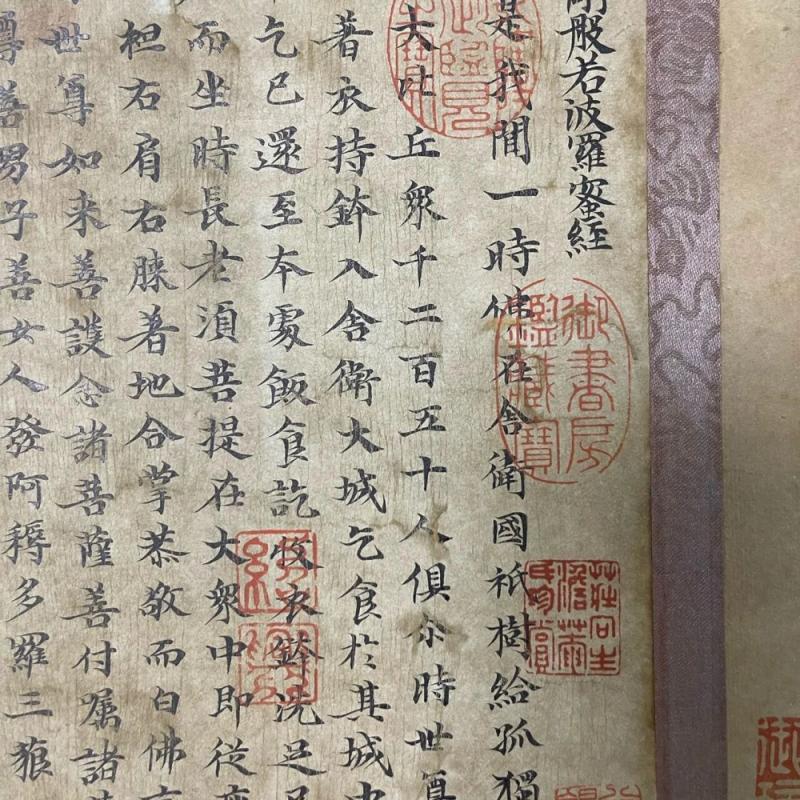 剛般若波羅蜜經
是我聞一時佛在舍衛國祇樹給孤獨
大比丘衆千二百五十人俱尒時世尊
著衣持鉢入舍衛大城乞食於其城中
乞已還至本處飯食訖收衣鉢洗足
而坐時長老湏菩提在大衆中即從座
袒右肩右膝著地合掌恭敬而白佛言
世尊如来善護念諸菩薩善付囑諸
尊善男子善女人發阿耨多羅三藐
御書房
鑑藏寶